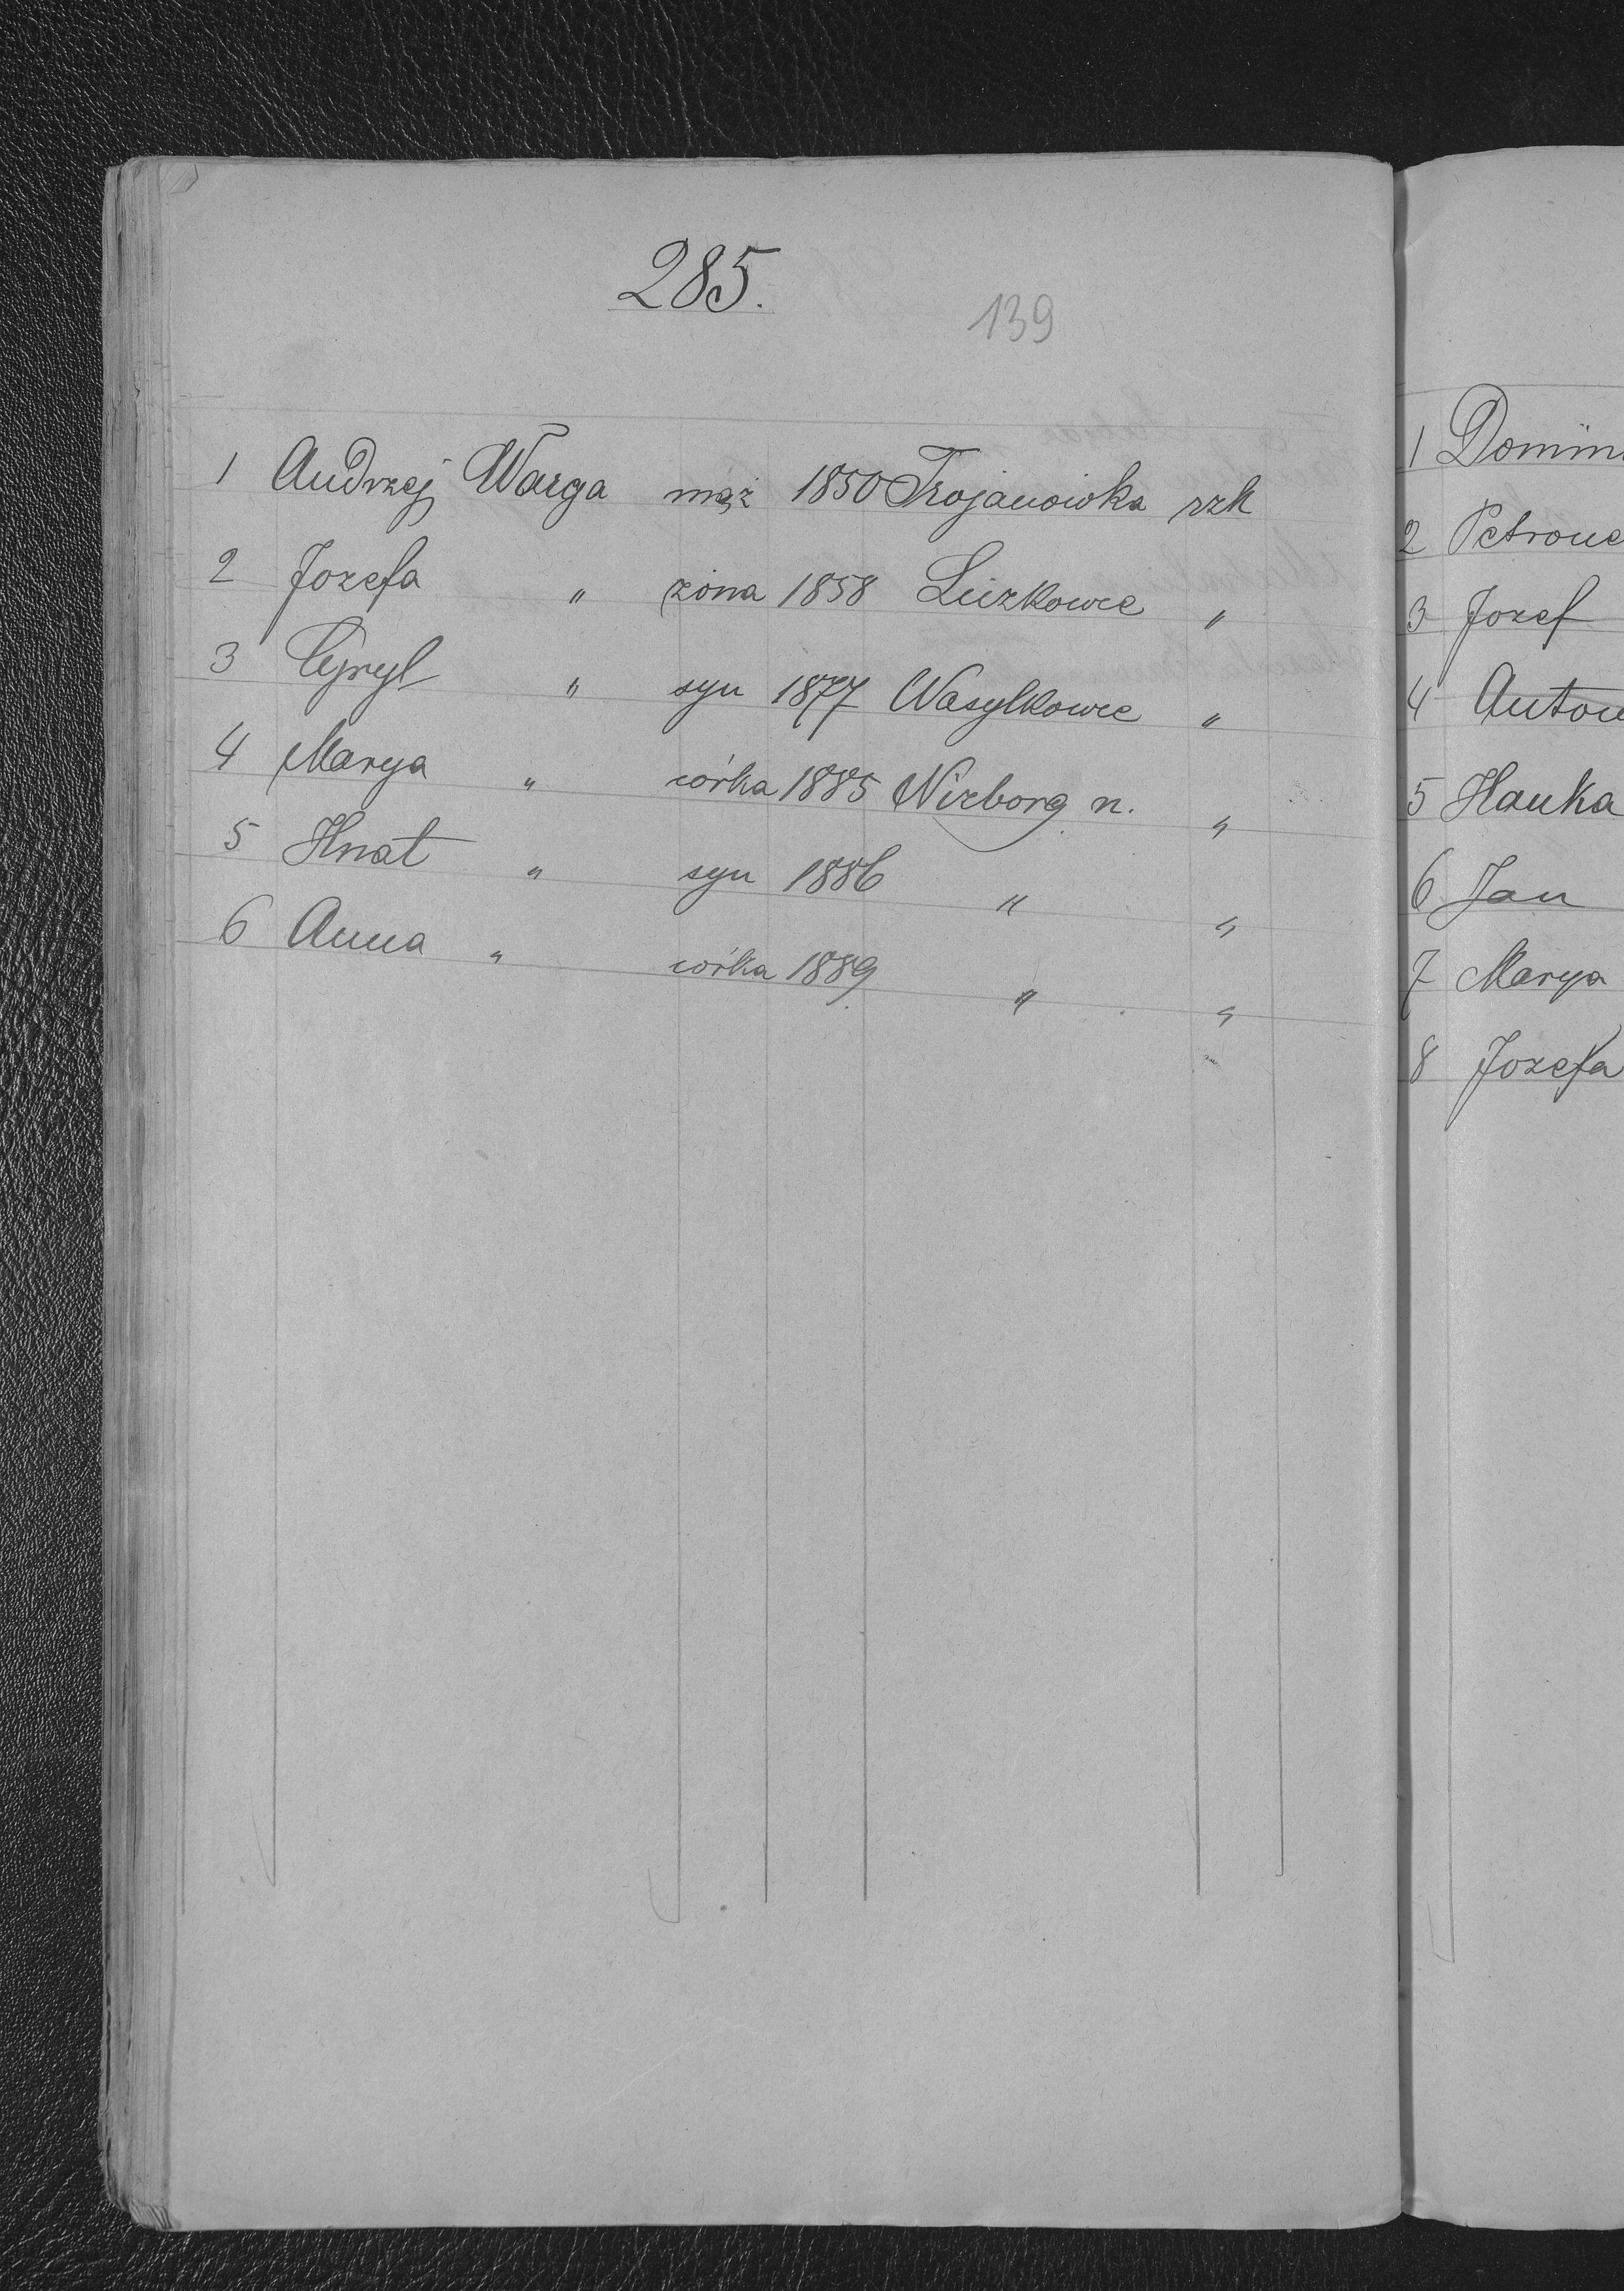 285.
139
1 Andrzej Warga mąż 1850 Trojanowka rzk
2 Jozefa " żona 1858 Liczkowce "
3 Cyryl " syn 1877 Wasylkowce "
4 Marya " córka 1885 Nizborg n. "
5 Hnat " syn 1886 " "
6 Anna " córka 1889 " "
1 Domin
2 Petrone
3 Jozef
4 Anton
5 Hanka
6 Jan
7 Marya
8 Jozefa